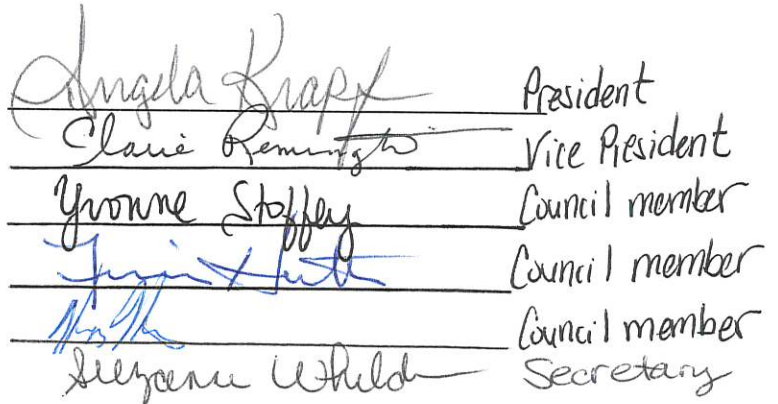 Angela Krapf President
Claire Remington Vice President
Yvonne Stoffey Council member
Council member
Council member
Suzanne Whilde Secretary